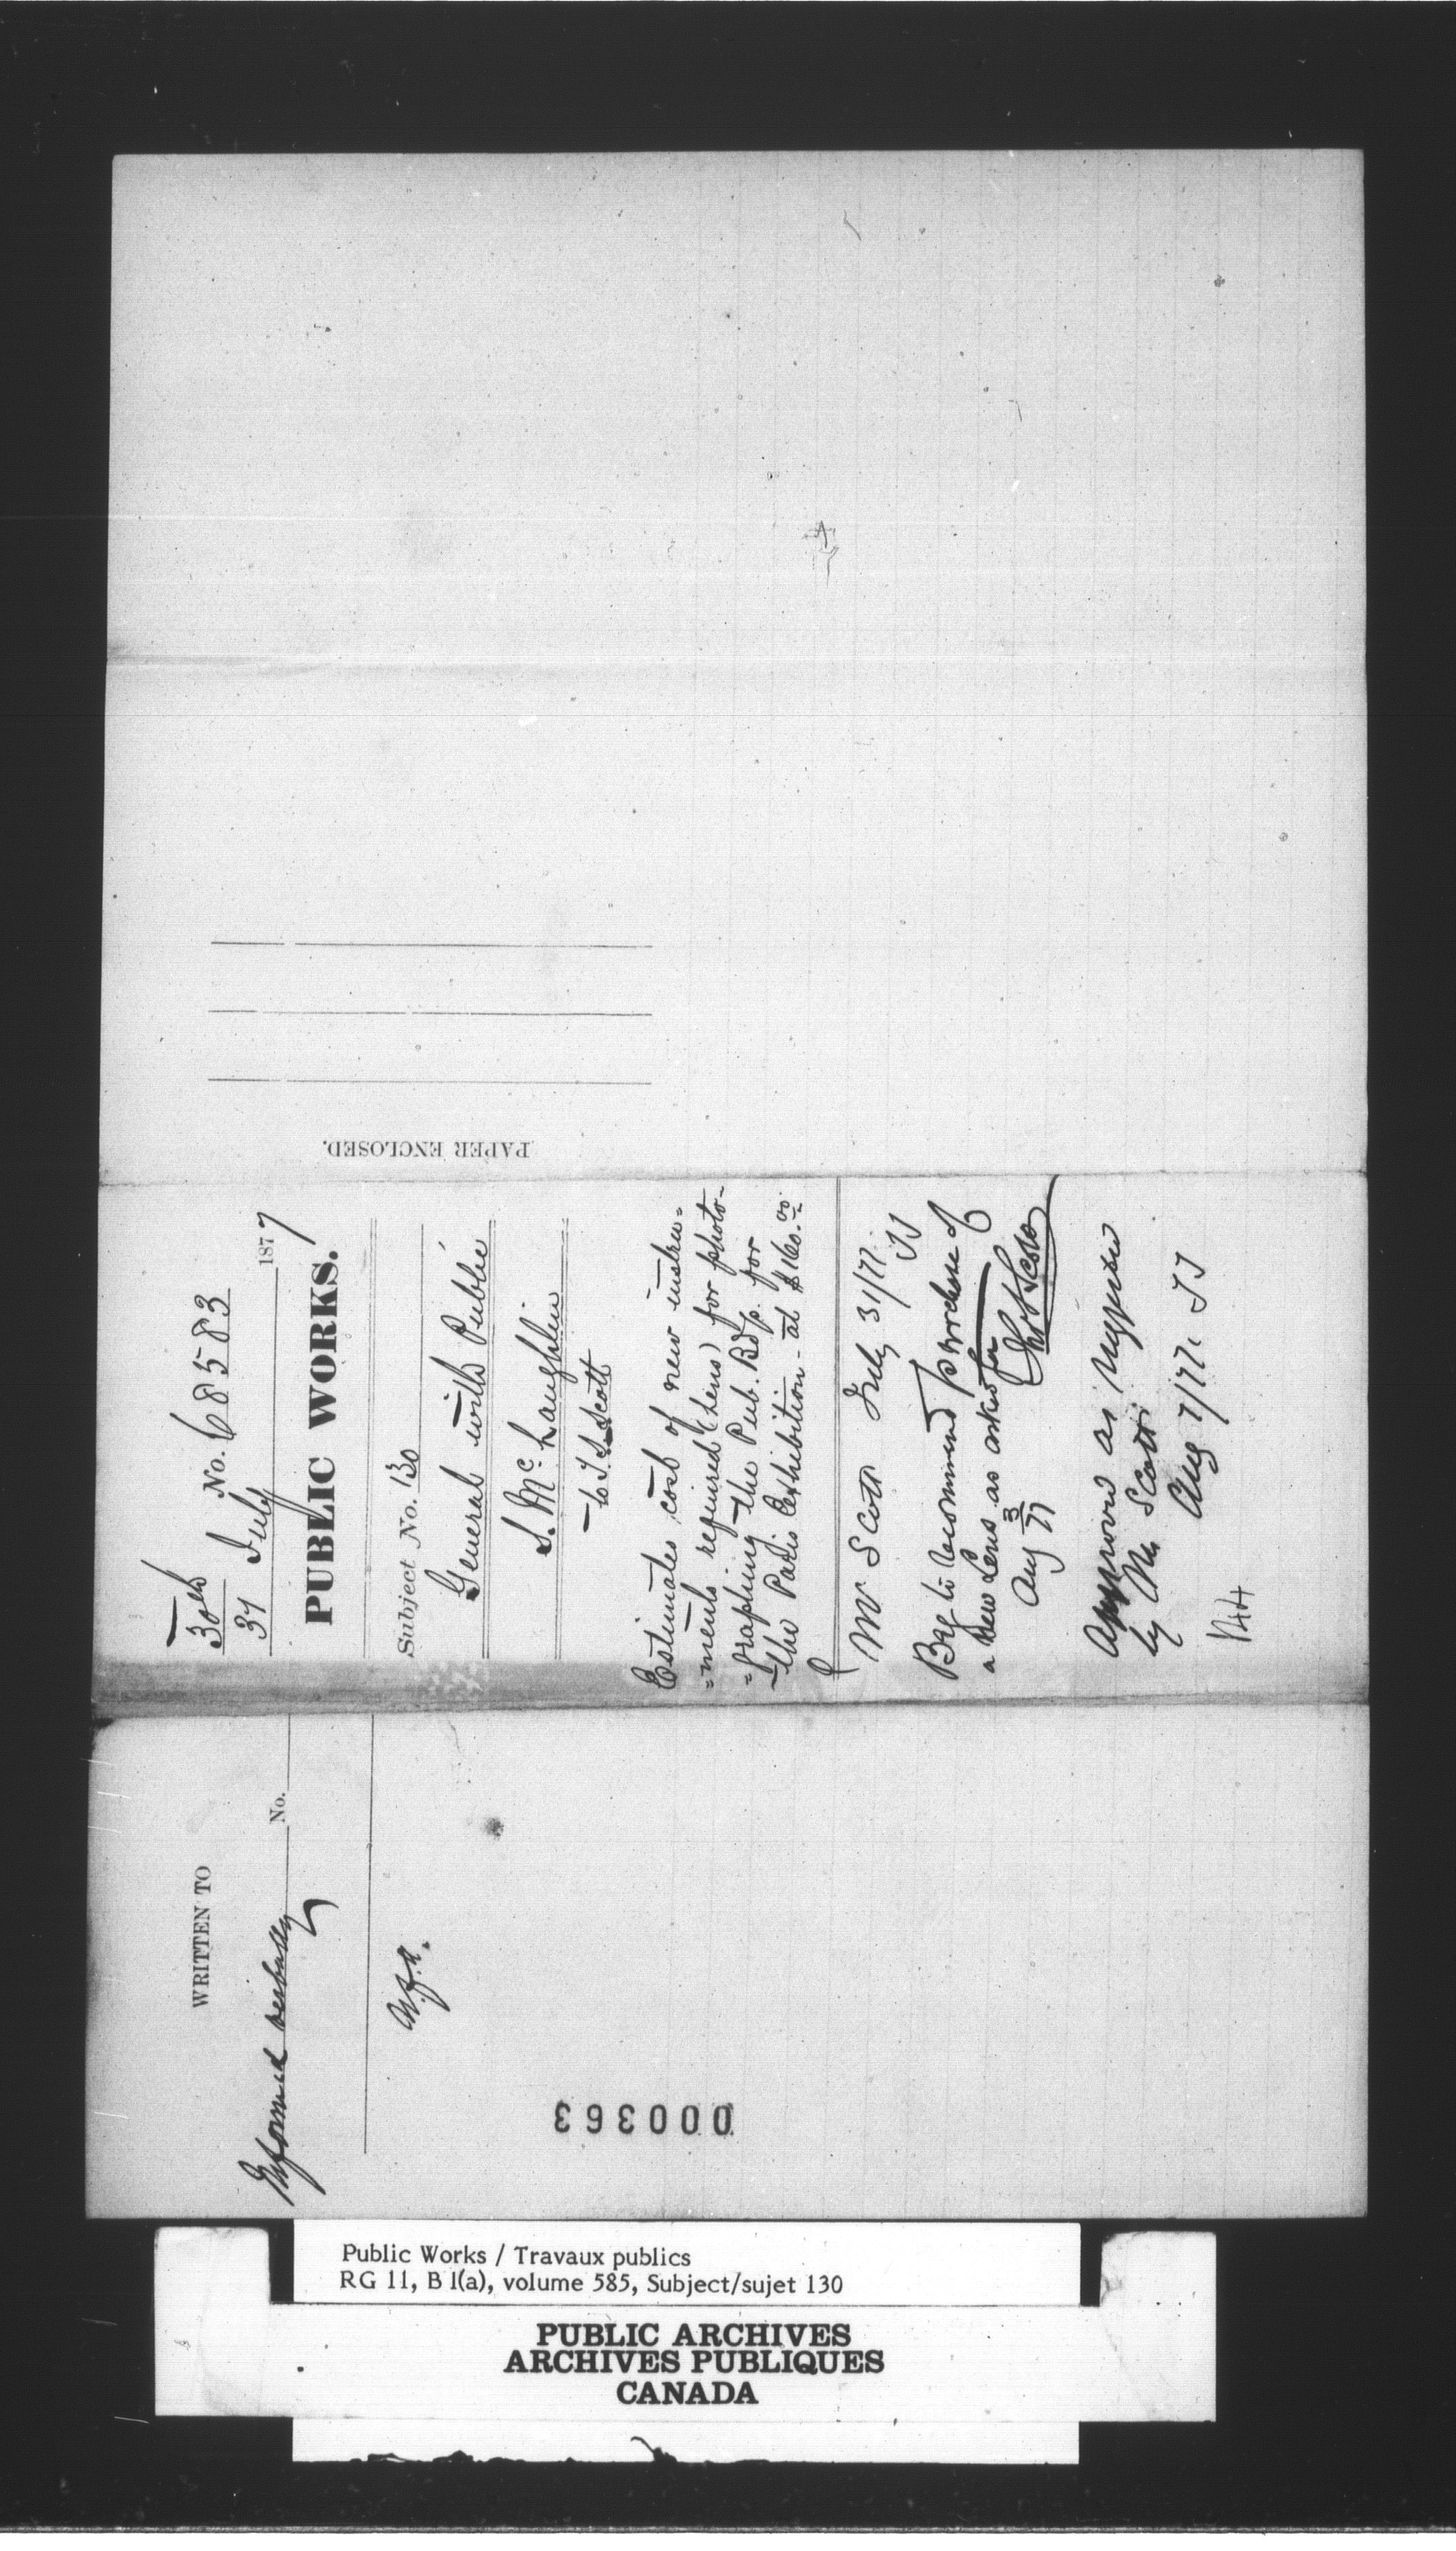 30th
31 July 1877
No. 68583
PUBLIC WORKS.
Subject No. 130
General with Public
S. McLaughlin
to T. S. Scott
Estimates cost of new instru=
=ments required (Lens) for photo-
=graphing the Pub. Bdgs. for
the Paris Exhibition - at $160.00
Mr Scott July 31/77.
Beg to recommend purchase of
a new Lens as asked for
Aug 3/77
Thos S Scott
Approved as
by Mr Scott
Aug 7/77
PAPER ENCLOSED.
WRITTEN TO
No.
Informed verbally
000363
Public Works / Travaux publics
RG 11, B 1(a), volume 585, Subject/sujet 130
PUBLIC ARCHIVES
ARCHIVES PUBLIQUES
CANADA